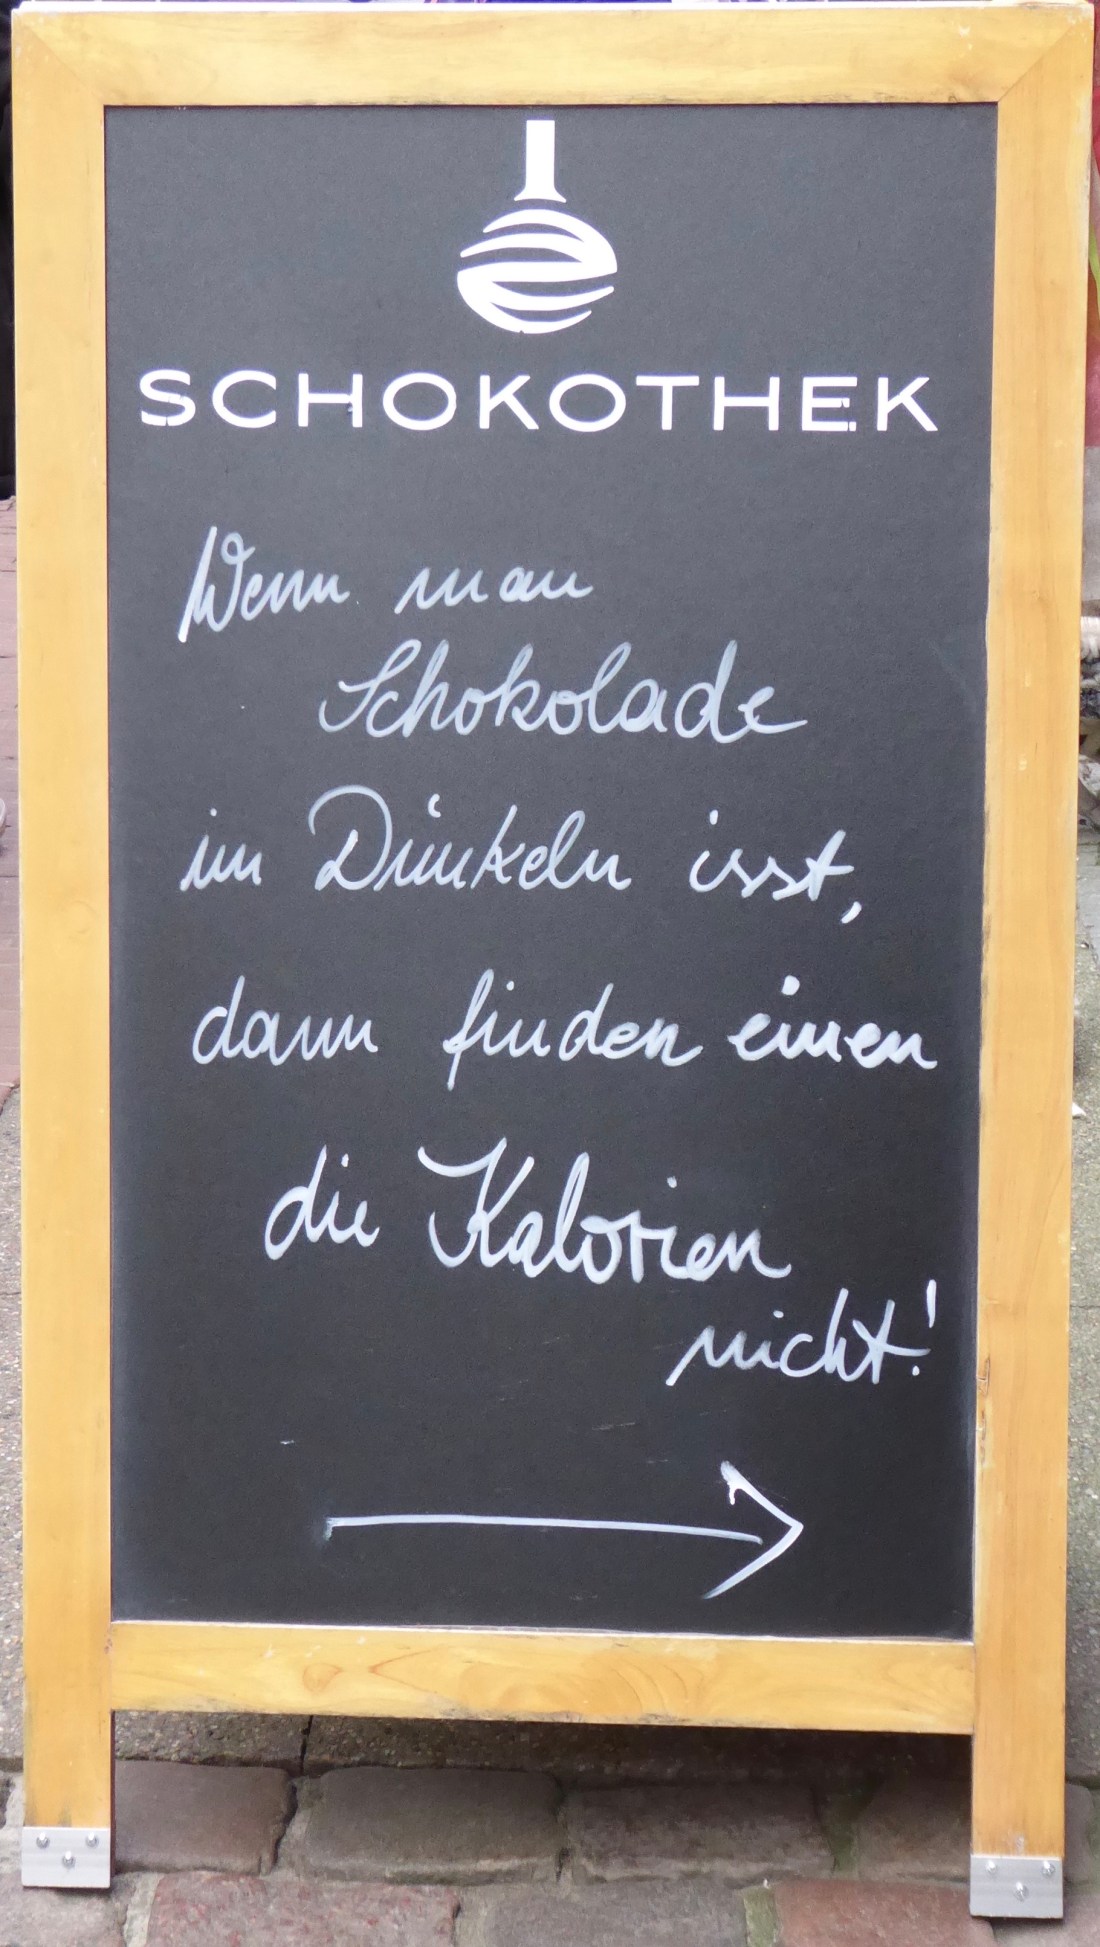 SCHOKOTHEK
Wenn man
Schokolade
im Dunkeln isst,
dann finden einen
die Kalorien
nicht!